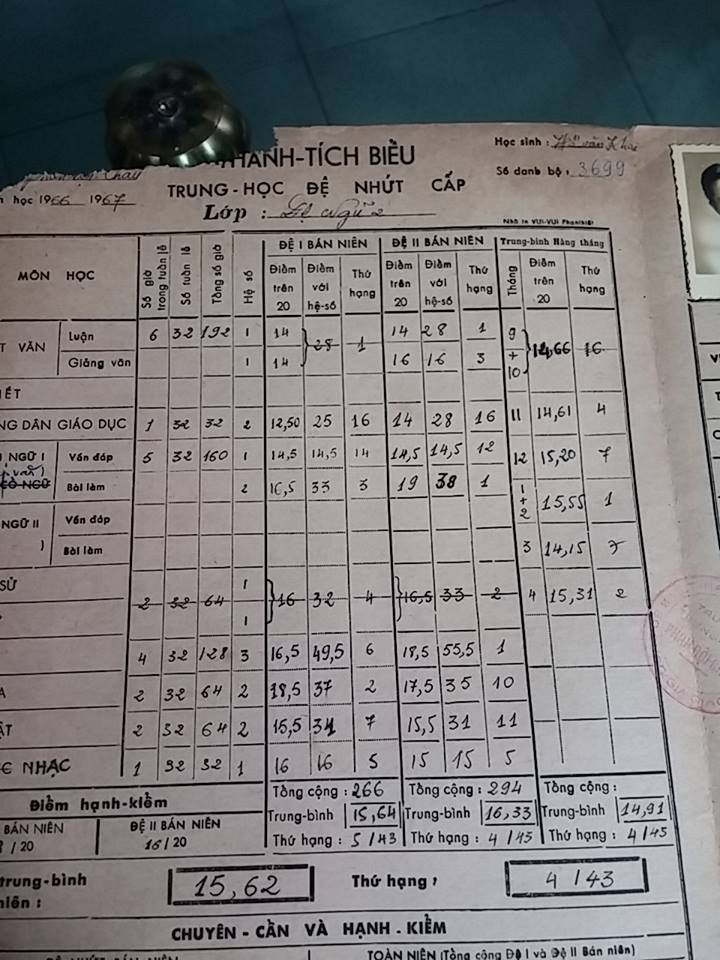 HÀNH-TÍCH BIỀU
Học sinh :
Số danh bộ : 3699
TRUNG-HỌC ĐỆ NHỨT CẤP
học 1966 1967
Lớp : Đệ ngũ 2
Nhà in VUI-VUI
MÔN HỌC Số giờ trong tuần lễ Số tuần lễ Tổng số giờ Hệ số ĐỆ I BÁN NIÊN ĐỆ II BÁN NIÊN Trung-bình Hàng tháng
Điểm trên 20 Điểm với hệ-số Thứ hạng Điểm trên 20 Điểm với hệ-số Thứ hạng Tháng Điểm trên 20 Thứ hạng
T VĂN Luận 6 32 192 1 14 28 1 14 28 1 9 + 10 14,66 16
Giảng văn 1 14 16 16 3
IẾT
NG DÂN GIÁO DỤC 1 32 32 2 12,50 25 16 14 28 16 11 14,61 4
NGỮ I Vấn đáp 5 32 160 1 14,5 14,5 14 14,5 14,5 12 12 15,20 7
CỔ NGỮ Bài làm 2 16,5 33 3 19 38 1 1 + 2 15,55 1
NGỮ II Vấn đáp
) Bài làm 3 14,15 7
SỬ 2 32 64 1 1 16 32 4 16,5 33 2 4 15,31 2
4 32 128 3 16,5 49,5 6 18,5 55,5 1
A 2 32 64 2 18,5 37 2 17,5 35 10
ẬT 2 32 64 2 15,5 31 7 15,5 31 11
NHẠC 1 32 32 1 16 16 5 15 15 5
Điểm hạnh-kiểm
Tổng cộng : 266 Tổng cộng : 294 Tổng cộng :
BÁN NIÊN ĐỆ II BÁN NIÊN Trung-bình 15,64 Trung-bình 16,33 Trung-bình 14,91
/ 20 16/ 20 Thứ hạng : 5 / 43 Thứ hạng : 4 / 45 Thứ hạng : 4 / 45
trung-bình niên : 15,62 Thứ hạng : 4 / 43
CHUYÊN - CẦN VÀ HẠNH - KIỂM
TOÀN NIÊN (Tổng cộng Đệ I và Đệ II Bán niên)